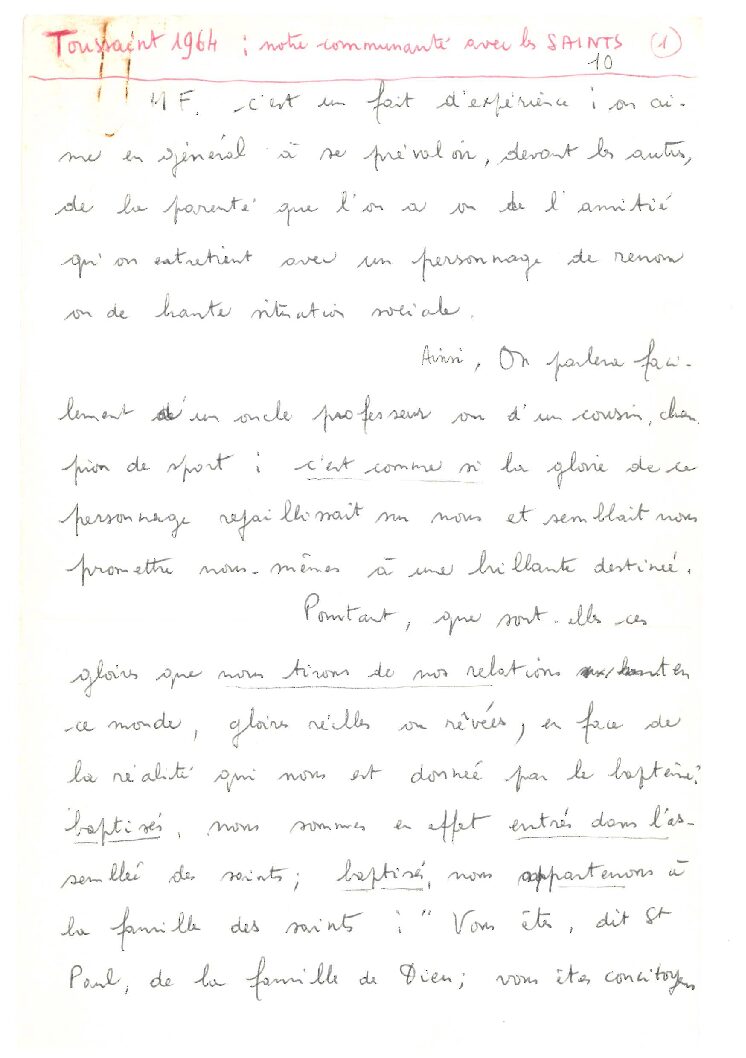 Toussaint 1964 : notre communauté avec les SAINTS (1)
10
M F. c'est un fait d'expérience : on ai-
me en général à se prévaloir, devant les autres,
de la parenté que l'on a ou de l'amitié
qu'on entretient avec un personnage de renom
ou de haute situation sociale.
Ainsi, On parlera faci-
lement d'un oncle professeur ou d'un cousin, cham
pion de sport : c'est comme si la gloire de ce
personnage rejaillissait sur nous et semblait nous
promettre nous-mêmes à une brillante destinée.
Pourtant, que sont-elles ces
gloires que nous tirons de nos relations en
ce monde, gloires réelles ou rêvées, en face de
la réalité qui nous est donnée par le baptême?
baptisés, nous sommes en effet entrés dans l'as-
semblée des saints ; baptisés, nous appartenons à
la famille des saints : " Vous êtes, dit St
Paul, de la famille de Dieu ; vous êtes concitoyens